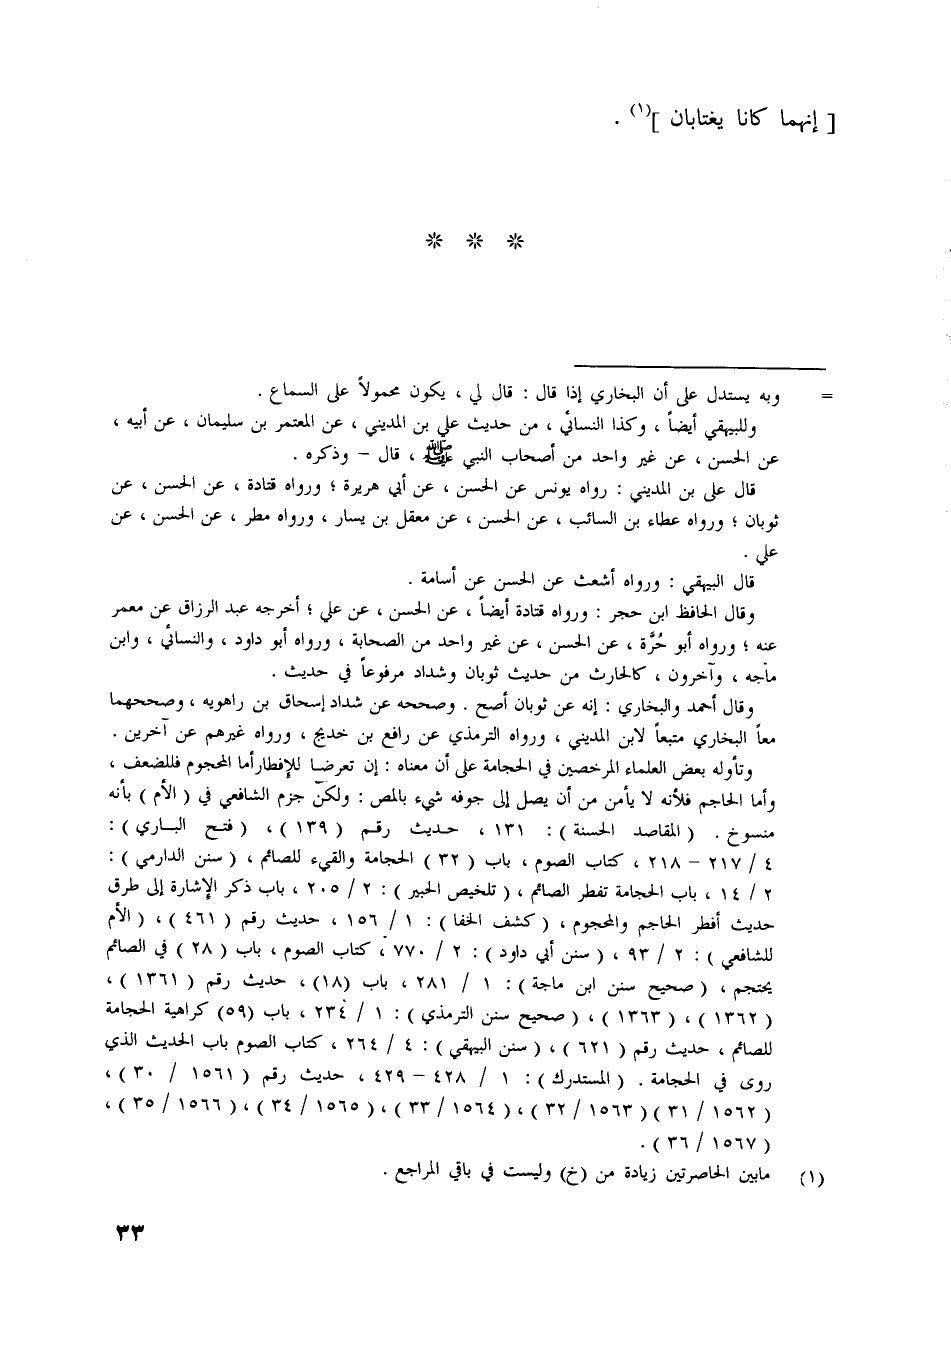 [ إنهما كانا يغتابان ](١) .
* * *
= وبه يستدل على أن البخاري إذا قال : قال لي ، يكون محمولاً على السماع .
وللبيهقي أيضاً ، وكذا النسائي ، من حديث علي بن المديني ، عن المعتمر بن سليمان ، عن أبيه ،
عن الحسن ، عن غير واحد من أصحاب النبي ﷺ ، قال – وذكره .
قال على بن المديني : رواه يونس عن الحسن ، عن أبي هريرة ؛ ورواه قتادة ، عن الحسن ، عن
ثوبان ؛ ورواه عطاء بن السائب ، عن الحسن ، عن معقل بن يسار ، ورواه مطر ، عن الحسن ، عن
علي .
قال البيهقي : ورواه أشعث عن الحسن عن أسامة .
وقال الحافظ ابن حجر : ورواه قتادة أيضاً ، عن الحسن ، عن علي ؛ أخرجه عبد الرزاق عن معمر
عنه ؛ ورواه أبو حُرَّة ، عن الحسن ، عن غير واحد من الصحابة ، ورواه أبو داود ، والنسائي ، وابن
ماجه ، وآخرون ، كالحارث من حديث ثوبان وشداد مرفوعاً في حديث .
وقال أحمد والبخاري : إنه عن ثوبان أصح . وصححه عن شداد إسحاق بن راهويه ، وصححهما
معاً البخاري متبعاً لابن المديني ، ورواه الترمذي عن رافع بن خديج ، ورواه غيرهم عن آخرين .
وتأوله بعض العلماء المرخصين في الحجامة على أن معناه : إن تعرضا للإفطار أما المحجوم فللضعف ،
وأما الحاجم فلأنه لا يأمن من أن يصل إلى جوفه شيء بالمص : ولكنّ جزم الشافعي في ( الأم ) بأنه
منسوخ . ( المقاصد الحسنة ) : ١٣١ ، حديث رقم ( ١٣٩ ) ، ( فتح الباري ) :
٤ / ٢١٧ – ٢١٨ ، كتاب الصوم ، باب ( ٣٢ ) الحجامة والقيء للصائم ، ( سنن الدارمي ) :
٢ / ١٤ ، باب الحجامة تفطر الصائم ، ( تلخيص الحبير ) : ٢ / ٢٠٥ ، باب ذكر الإشارة إلى طرق
حديث أفطر الحاجم والمحجوم ، ( كشف الخفا ) : ١ / ١٥٦ ، حديث رقم ( ٤٦١ ) ، ( الأم
للشافعي ) : ٢ / ٩٣ ، ( سنن أبي داود ) : ٢ / ٧٧٠ ، كتاب الصوم ، باب ( ٢٨ ) في الصائم
يحتجم ، ( صحيح سنن ابن ماجة ) : ١ / ٢٨١ ، باب (١٨) ، حديث رقم ( ١٣٦١ ) ،
( ١٣٦٢ ) ، ( ١٣٦٣ ) ، ( صحيح سنن الترمذي ) : ١ / ٢٣٤ ، باب (٥٩) كراهية الحجامة
للصائم ، حديث رقم ( ٦٢١ ) ، ( سنن البيهقي ) : ٤ / ٢٦٤ ، كتاب الصوم باب الحديث الذي
روى في الحجامة . ( المستدرك ) : ١ / ٤٢٨ – ٤٢٩ ، حديث رقم ( ١٥٦١ / ٣٠ ) ،
( ١٥٦٢ / ٣١ ) ( ١٥٦٣ / ٣٢ ) ، ( ١٥٦٤ / ٣٣ ) ، ( ١٥٦٥ / ٣٤ ) ، ( ١٥٦٦ / ٣٥ ) ،
( ١٥٦٧ / ٣٦ ) .
(١) مابين الحاصرتين زيادة من (خ) وليست في باقي المراجع .
٣٣